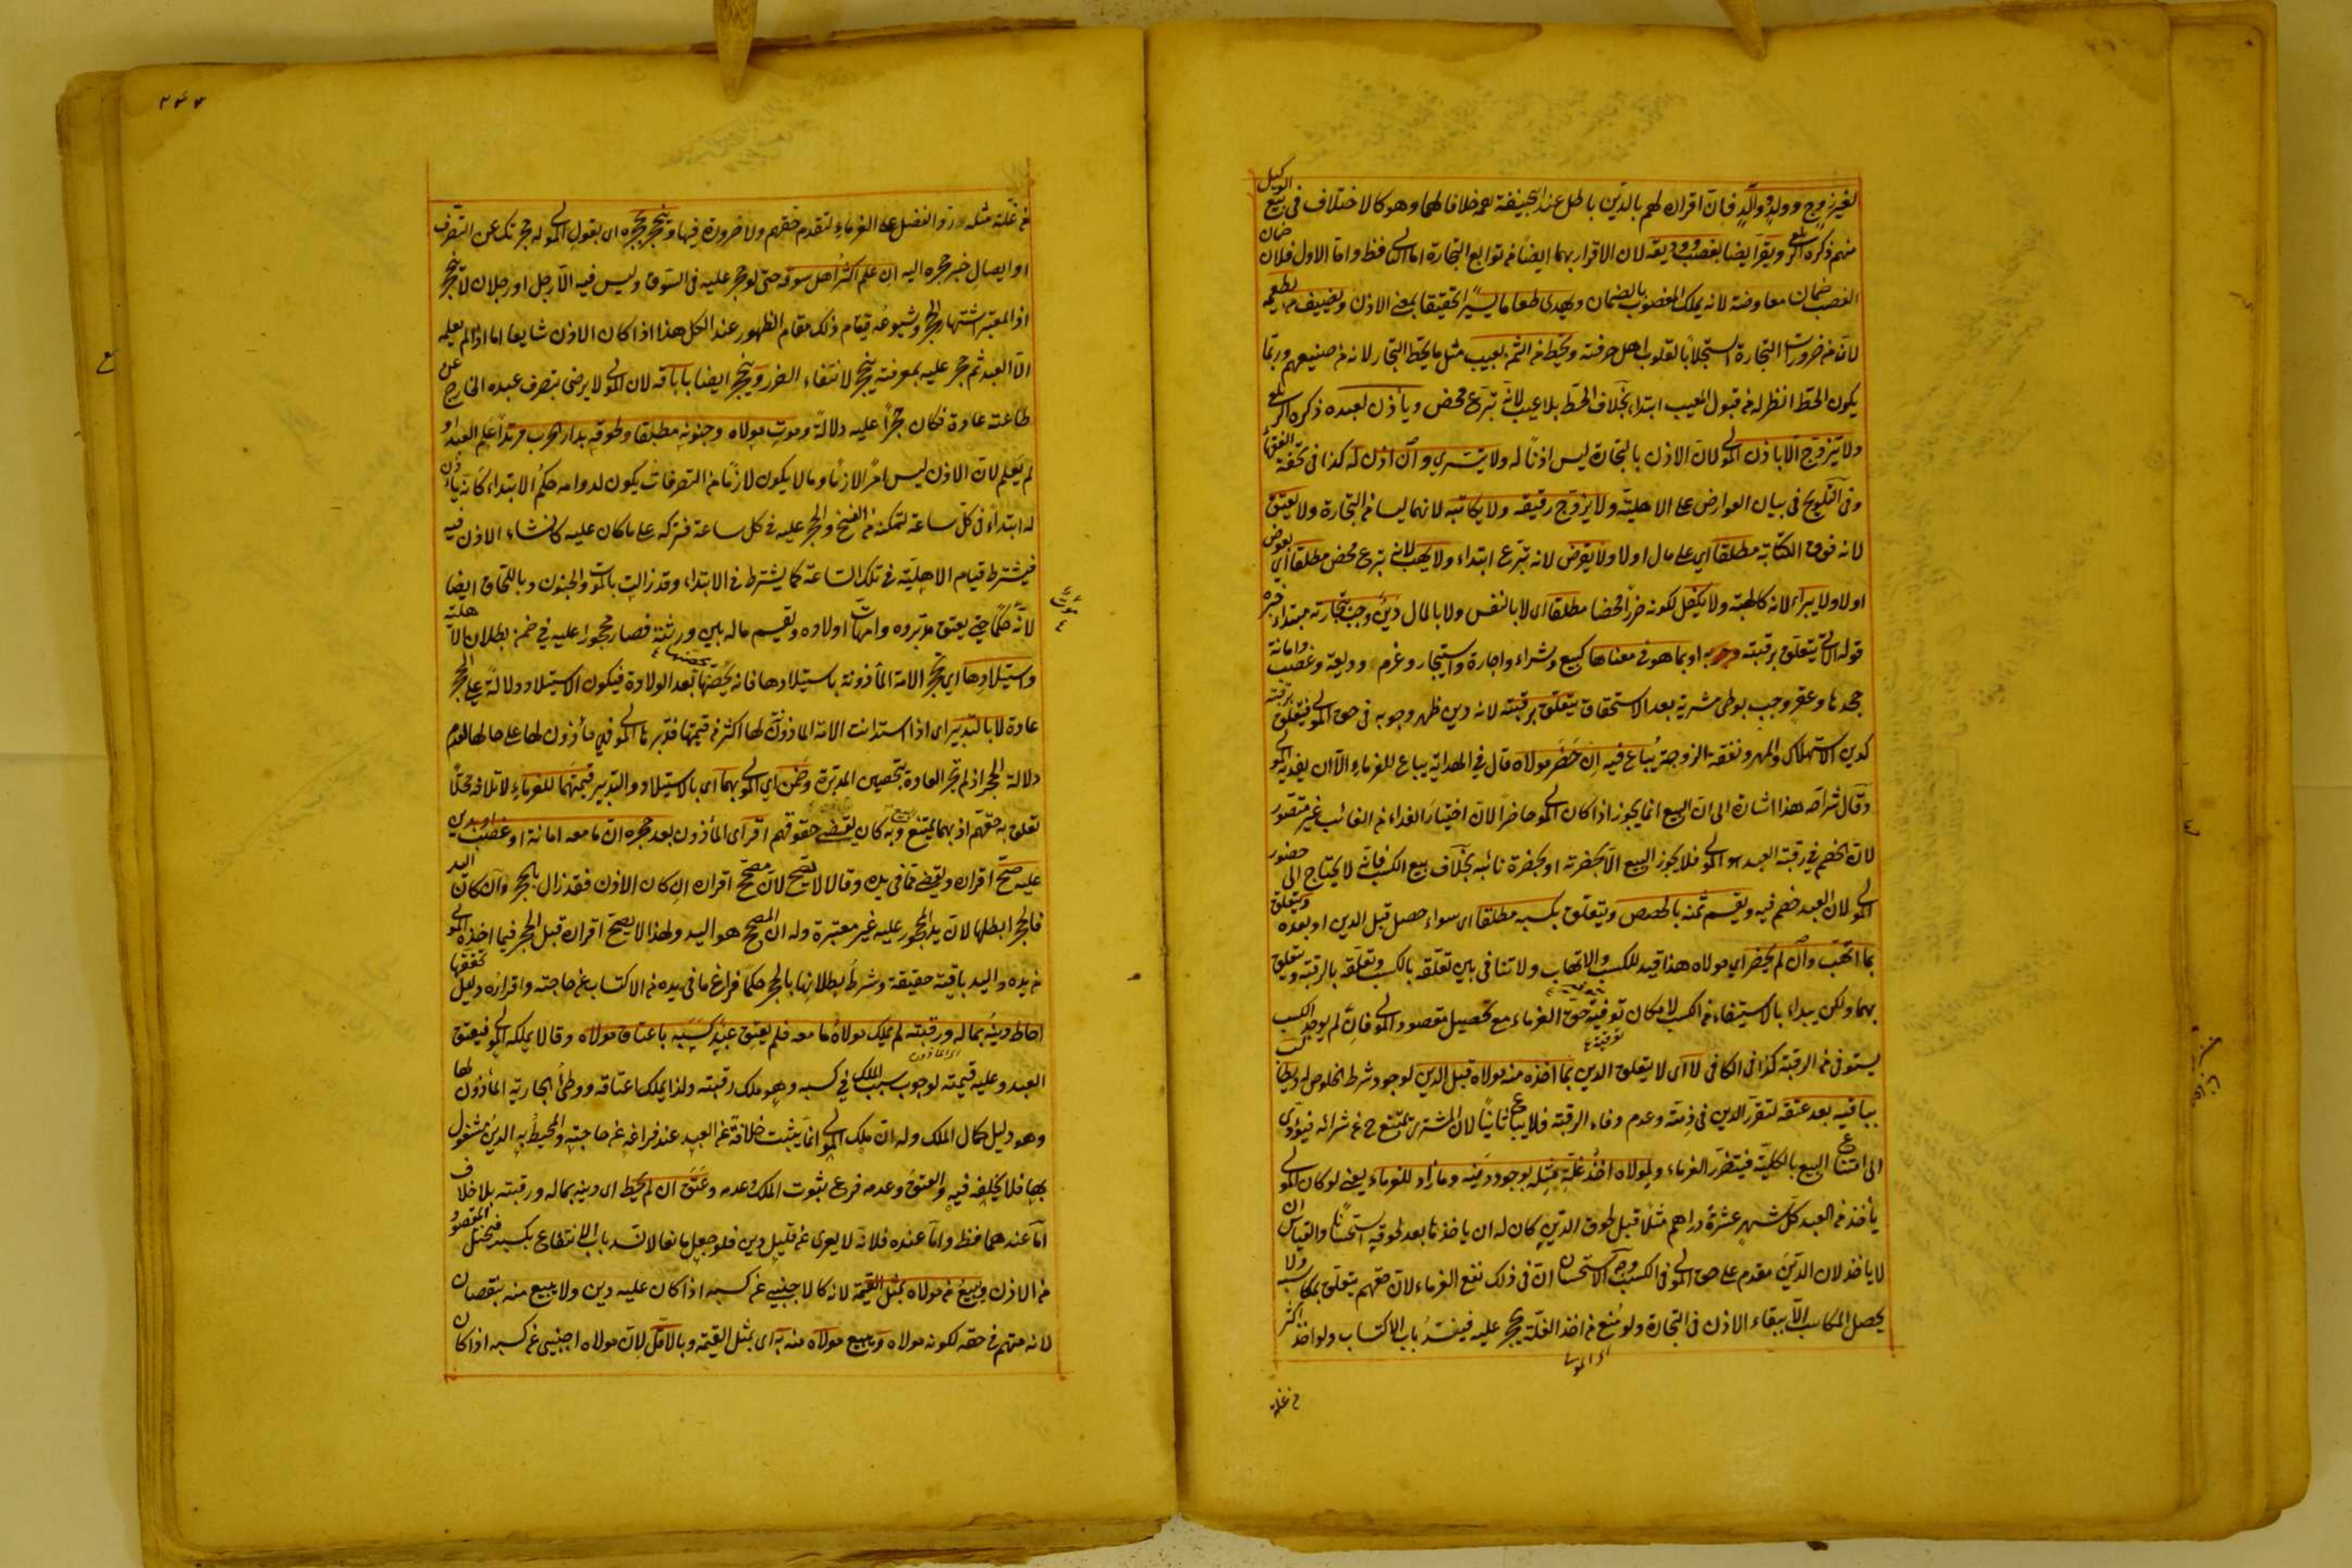 لغير زوج وولد ووالد فان اقراره لهم بالدين باطل عند ابي حنيفة رحمه خلافا لهما وهو كالاختلاف في بيع الوكيل
منهم ذكره الزيلعي ويقر ايضا بغصب ووديعة لان الاقرار بهما ايضا من توابع التجارة اما الثاني فظ واما الاول فلان ضمان
الغصب ضمان معاوضة لانه يملك المغصوب بالضمان ويهدي طعاما يسيرا تحقيقا لمعنى الاذن ويضيف من يطعمه
لانه من ضرورات التجارة استجلابا لقلوب اهل حرفته ويحط من الثمن بعيب مثل ما يحط التجار لانه من صنيعهم وربما
يكون الحط انظر له من قبول المعيب ابتداء بخلاف الحط بلا عيب لانه تبرع محض ويأذن لعبده ذكره الزيلعي
ولا يتزوج الا باذن المولى لان الاذن بالتجارة ليس اذنا له ولا يتسرى وان اذن له كذا في تحفة الفقهاء
وفي التلويح في بيان العوارض على الاهلية ولا يزوج رقيقه ولا يكاتبه لانهما ليسا من التجارة ولا يعتق
لانه فوق الكتابة مطلقا اي على مال اولا ولا يقرض لانه تبرع ابتداء ولا يهب لانه تبرع محض مطلقا اي بعوض
اولا ولا يبرأ لانه كالهبة ولا يكفل لكونه ضررا محضا مطلقا اي لا بالنفس ولا بالمال دين وجب بتجارته مبتداء خبره
قوله الآتي يتعلق برقبته او بما هو في معناها كبيع وشراء واجارة واستيجار وغرم وديعة وغصب وامانة
جحدها وعقر وجب بوطئ مشرية بعد الاستحقاق يتعلق برقبته لانه دين ظهر وجوبه في حق المولى فيتعلق برقبته
كدين الاستهلاك والمهر ونفقة الزوجة يباع فيه ان حضر مولاه قال في الهداية يباع للغرماء الا ان يفديه المولى
وقال شراحه هذا اشارة الى ان البيع انما يجوز اذا كان المولى حاضرا لان اختيار الفداء من الغائب غير متصور
لان الخصم في رقبة العبد هو المولى فلا يجوز البيع الا بحضرته او بحضرة نائبه بخلاف بيع الكسب فانه لا يحتاج الى حضور
المولى لان العبد خصم فيه ويقسم ثمنه بالحصص ويتعلق بكسبه مطلقا اي سواء حصل قبل الدين او بعده ويتعلق
بما اتهب وان لم يحضر اي مولاه هذا قيد للكسب والاتهاب ولا تنافي بين تعلقه بالكسب وتعلقه بالرقبة ويتعلق
بهما ولكن يبداء بالاستيفاء من الكسب لامكان توفية حق الغرماء مع تحصيل مقصود المولى فان لم يوجد الكسب
يستوفى من الرقبة كذا في الكافي لا اي لا يتعلق الدين بما اخذه منه مولاه قبل الدين لوجود شرط الخلوص له ويطالب
بباقيه بعد عتقه لتقرر الدين في ذمته وعدم وفاء الرقبة فلا يباع ثانيا لان المشتري يمتنع ح عن شرائه فيؤدى
الى امتناع البيع بالكلية فيتضرر الغرماء ولمولاه اخذ غلة مثله بوجود دينه وما زاد للغرماء يعني لو كان المولى
يأخذ من العبد كل شهر عشرة دراهم مثلا قبل لحوق الدين كان له ان ياخذها بعد لحوقه استحسانا والقياس ان
لا ياخذ لان الدين مقدم على حق المولى في الكسب وجه الاستحسان ان في ذلك نفع الغرماء لان حقهم يتعلق بمكاسبه ولا
يحصل المكاسب الا ببقاء الاذن في التجارة ولو منع من اخذ الغلة يحجر عليه فينسد باب الاكتساب ولو اخذ اكثر
اى المولى
من غلة
من غلة مثله رد الفضل على الغرماء لتقدم حقهم ولا ضرورة فيها وينحجر بحجره اي بقول المولى له حجرتك عن التصرف
او ايصال خبر حجره اليه ان علم اكثر اهل سوقه حتى لو حجر عليه في السوق وليس فيه الا رجل او رجلان لا ينحجر
اذ المعتبر اشتهار الحجر وشيوعه فيقام ذلك مقام الظهور عند الكل هذا اذا كان الاذن شايعا اما اذا لم يعلم به
الا العبد ثم حجر عليه بمعرفته ينحجر لانتفاء الضرر وينحجر ايضا باباقه لان المولى لا يرضى بتصرف عبده الخارج عن
طاعته عادة فكان حجرا عليه دلالة وموت مولاه وجنونه مطبقا ولحوقه بدار الحرب مرتدا علم العبد او
لم يعلم لان الاذن ليس امرا لازما وما لا يكون لازما من التصرفات يكون لدوامه حكم الابتداء كانه يأذن
له ابتداء في كل ساعة لتمكنه من الفسخ والحجر عليه في كل ساعة فتركه على ما كان عليه كانشاء الاذن فيه
فيشترط قيام الاهلية في تلك الساعة كما يشترط في الابتداء وقد زالت بالموت والجنون وباللحاق ايضا
لانه موت حكما حتى يعتق مدبروه وامهات اولاده ويقسم ماله بين ورثته فصار محجورا عليه في ضمن بطلان الاهلية
واستيلادها اي تحجر الامة المأذونة باستيلادها فانه يحصنها بعد الولادة فيكون الاستيلاد دلالة على الحجر
عادة لا بالتدبير اي اذا استدانت الامة الماذونة لها اكثر من قيمتها فدبرها المولى فهي مأذون لها على حالها لعدم
دلالة الحجر اذ لم تجر العادة بتحصين المدبرة وضمن اي المولى بهما اي بالاستيلاد والتدبير قيمتهما للغرماء لاتلافه محلا
تعلق به حقهم اذ بهما يمتنع البيع وبه كان يقضى حقوقهم اقر اي المأذون بعد حجره ان ما معه امانة او غصب او بدين
عليه صح اقراره ويقضى مما في يده وقالا لا يصح لان مصحح اقراره ان كان الاذن فقد زال بالحجر وان كان اليد
فالحجر ابطلها لان يد المحجور عليه غير معتبرة وله ان المصحح هو اليد ولهذا لا يصح اقراره قبل الحجر فيما اخذه المولى
من يده واليد باقية حقيقة وشرط بطلانها بالحجر حكما فراغ ما في يده من الاكتساب عن حاجته واقراره دليل تحققها
احاط دينه بماله ورقبته لم يملك مولاه ما معه فلم يعتق عبد كسبه باعتاق مولاه وقالا يملكه المولى فيعتق
العبد وعليه قيمته لوجوب سبب الملك في كسبه وهو ملك رقبته ولذا يملك اعتاقه ووطئ الجارية المأذون لها
وهو دليل كمال الملك وله ان ملك المولى انما يثبت خلافة عن العبد عند فراغه عن حاجته والمحيط به الدين مشغول
بها فلا يخلفه فيه والعتق وعدمه فرع ثبوت الملك وعدمه وعتق ان لم يحط اي دينه بماله ورقبته بلا خلاف
اما عندهما فظ واما عنده فلانه لا يعرى عن قليل دين فلو جعل مانعا لانسد باب الانتفاع بكسبه فيختل المقصود
من الاذن ويبيع من مولاه بمثل القيمة لانه كالاجنبي عن كسبه اذا كان عليه دين ولا يبيع منه بنقصان
لانه متهم في حقه لكونه مولاه ويبيع مولاه منه به اي بمثل القيمة وبالاقل لان مولاه اجنبي عن كسبه اذا كان